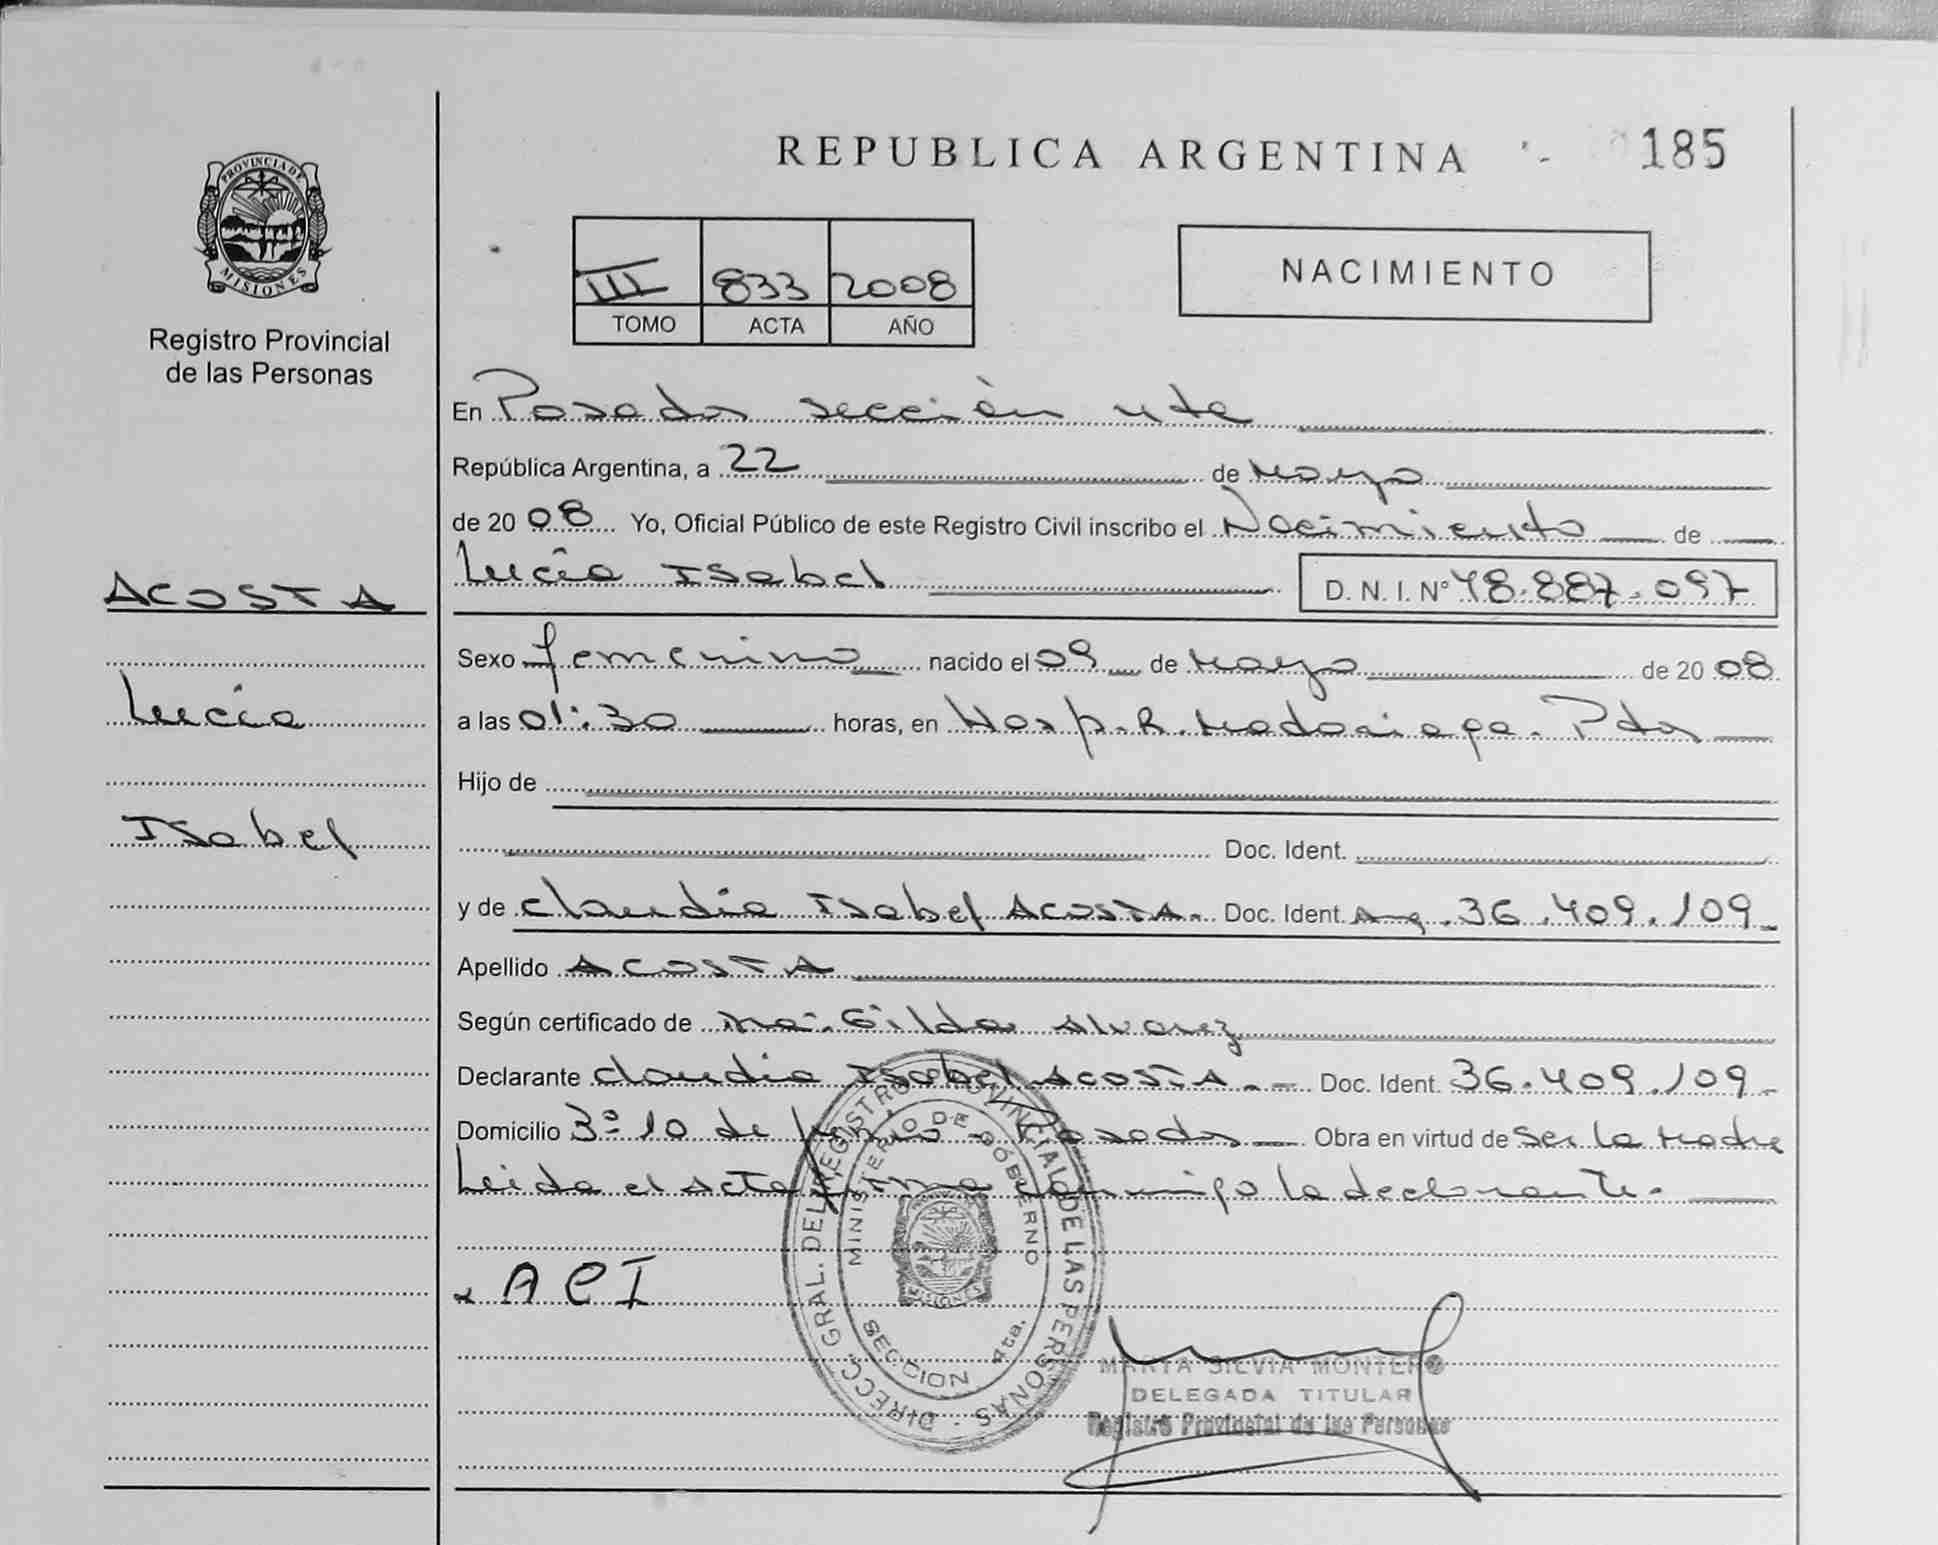 REPUBLICA ARGENTINA 185
PROVINCIA DE
MISIONES
Registro Provincial
de las Personas
III 833 2008
TOMO ACTA AÑO
NACIMIENTO
En Posadas sección 4ta
República Argentina, a 22 de Mayo
de 2008 Yo, Oficial Público de este Registro Civil inscribo el Nacimiento de
Lucía Isabel D.N.I. Nº 48.887.097
ACOSTA
Lucía
Isabel
Sexo femenino nacido el 09 de Mayo de 2008
a las 01:30 horas, en Hosp. R. Madariaga. Pdas
Hijo de
Doc. Ident.
y de Claudia Isabel ACOSTA. Doc. Ident. Arg. 36.409.109
Apellido ACOSTA
Según certificado de Gilda Alvarez
Declarante Claudia Isabel ACOSTA. Doc. Ident. 36.409.109
Domicilio 3º 10 de Posadas Obra en virtud de ser la Madre
Leida el Acta firma conmigo la declarante.
ACI
DIRECC. GRAL. DEL REGISTRO PROVINCIAL DE LAS PERSONAS
MINISTERIO DE GOBIERNO
MISIONES
SECCION 4ta.
MARTA SILVIA MONTERO
DELEGADA TITULAR
Registro Provincial de las Personas